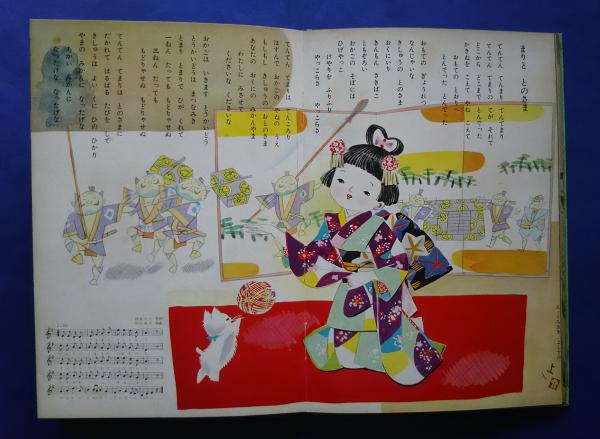 まりと とのさま
てんてん てんまり てんてまり
てんてん てまりの てが それて
どこから どこまで とんでった
かきねを こえて やね こえて
おもての とおりへ とんでった
とんでった
おもての ぎょうれつ
なんじゃいな
きしゅうの とのさま
おくにいり
きんもん さきばこ
ともぞろい
おかごの そばには
ひげやっこ
けやりを ふりふり
やっこらさ やっこらさ
てんてん てまりは てんころり
はずんで おかごの やねの うえ
もしもし きしゅうの おとのさま
あなたの おくにの みかんやま
わたしに みさせて
くださいな
くださいな
おかごは いきます とうかいどう
とうかいどうは まつなみき
とまり とまりで ひが くれて
一ねん たっても もどりゃせぬ
三ねん たっても もどりゃせぬ
もどりゃせぬ
てんてん てまりは とのさまに
だかれて はるばる たびを して
きしゅうは よい くに ひの ひかり
やまの みかんに なったげな
あかい みかんに
なったげな なったげな